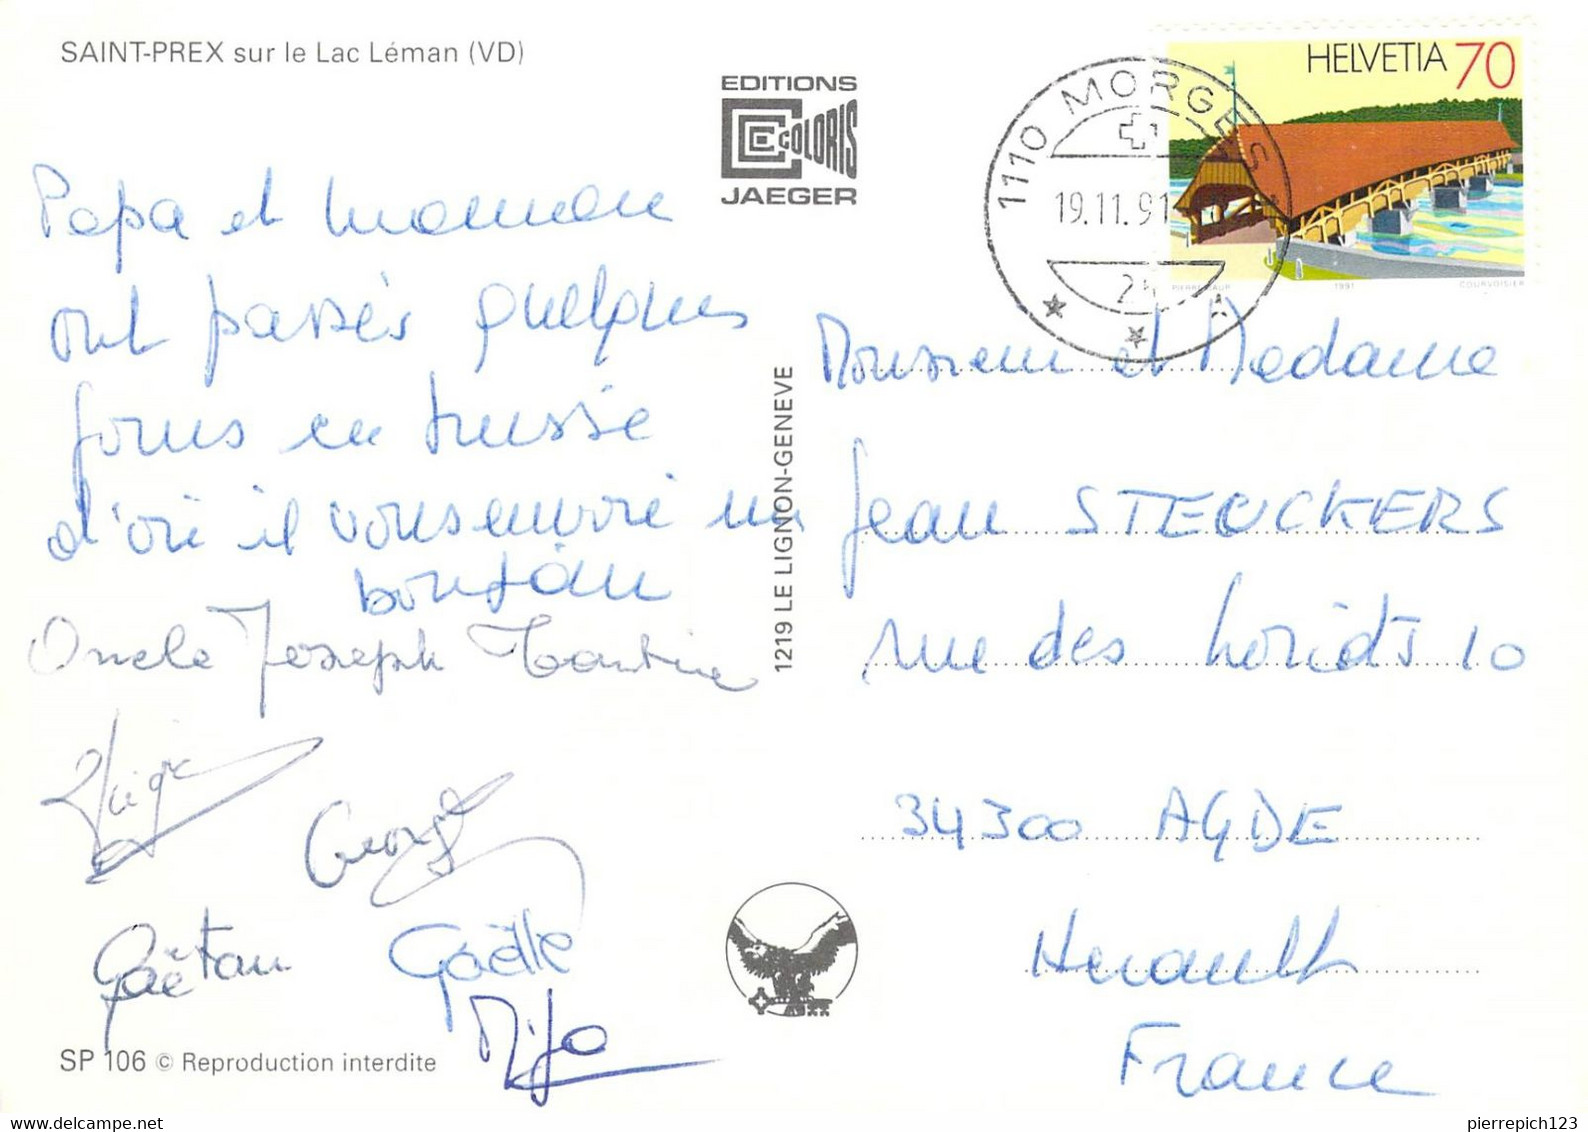 SAINT-PREX sur le Lac Léman (VD)
EDITIONS
COLORIS
JAEGER
HELVETIA 70
1110 MORGES
19.11.91
1991
COURVOISIER
Papa et maman
ont passés quelques
jours en suisse
d'où il vous envoie un
bonjour
Oncle Joseph
Gaëtan
Gaëlle
1219 LE LIGNON-GENEVE
Monsieur et Madame
Jean STEUCKERS
rue des Loriots 10
34300 AGDE
Herault
France
SP 106 © Reproduction interdite
www.delcampe.net
pierrepich123